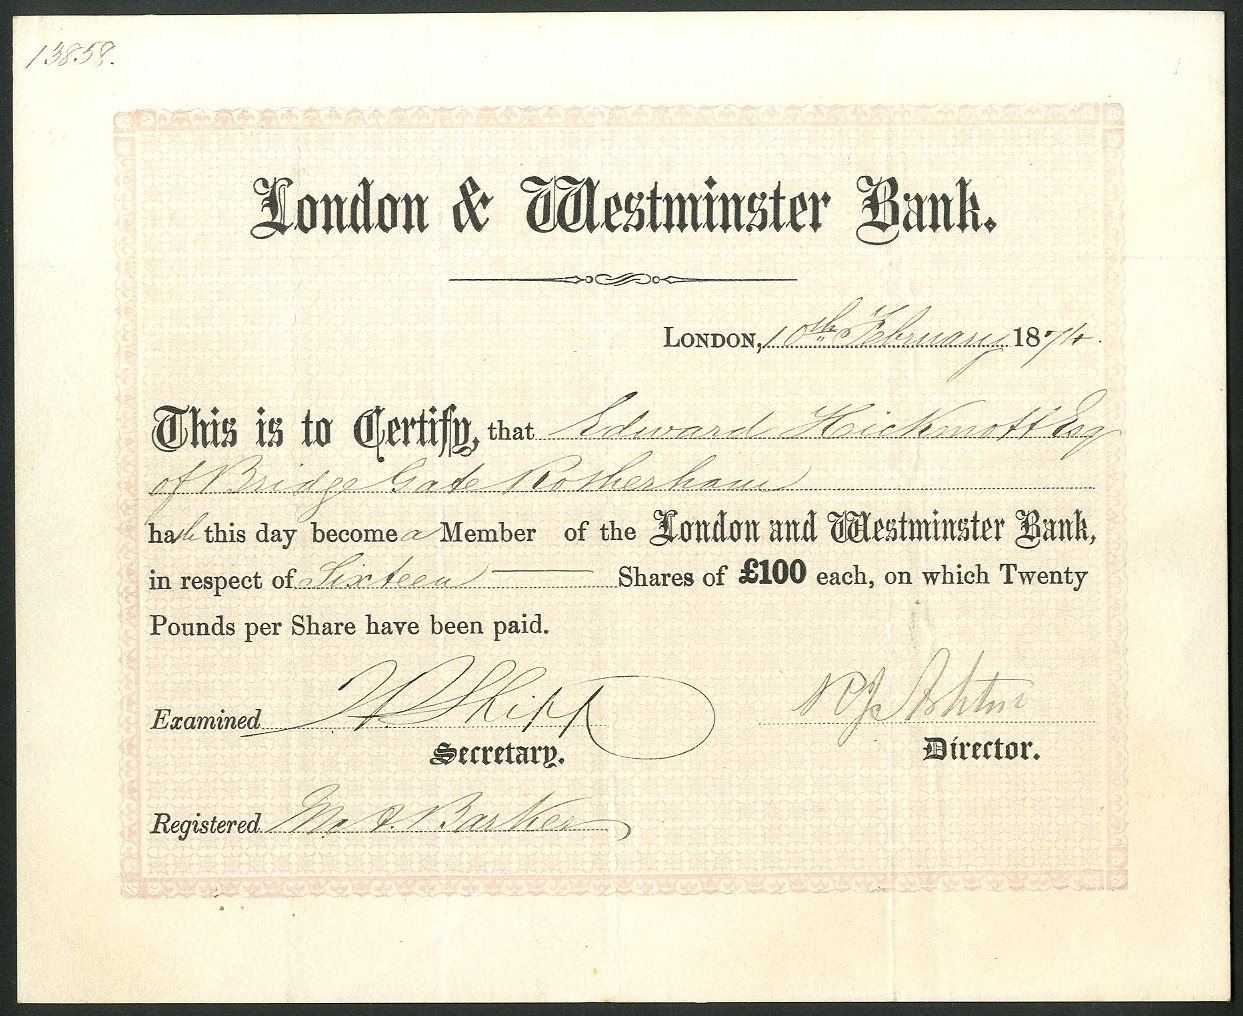 13858.
London & Westminster Bank.
London, 10th February 1874.
This is to Certify, that Edward Hickmott Esq
of Bridge Gate Rotherham
hath this day become a Member of the London and Westminster Bank,
in respect of Sixteen Shares of £100 each, on which Twenty
Pounds per Share have been paid.
Examined Shipp
Secretary.
Director.
Registered Barker